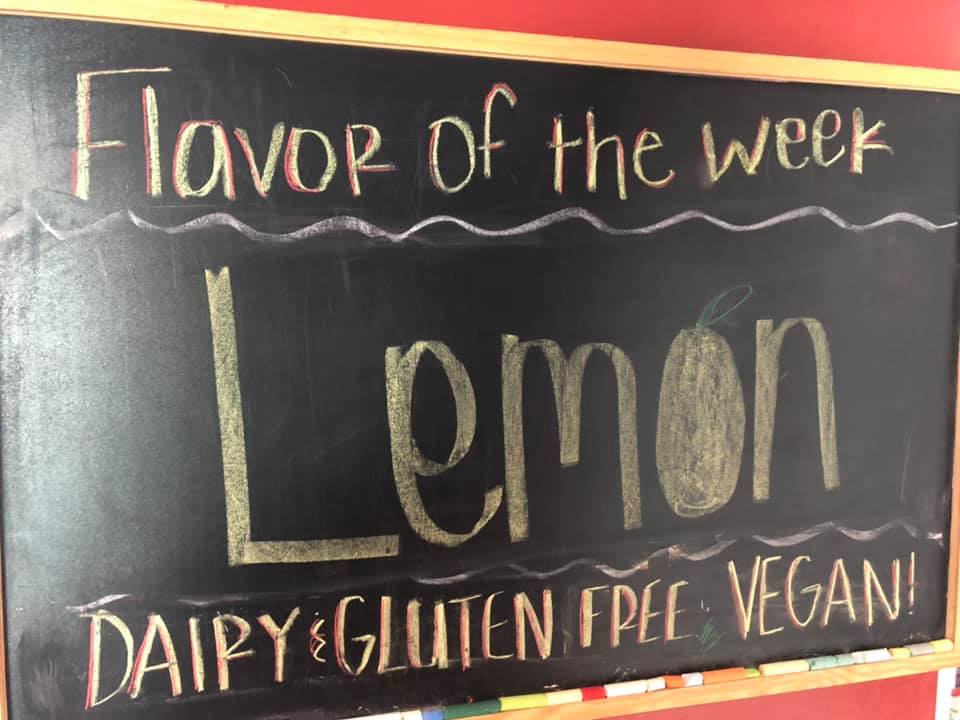 Flavor of the week
Lemon
DAIRY & GLUTEN FREE VEGAN!